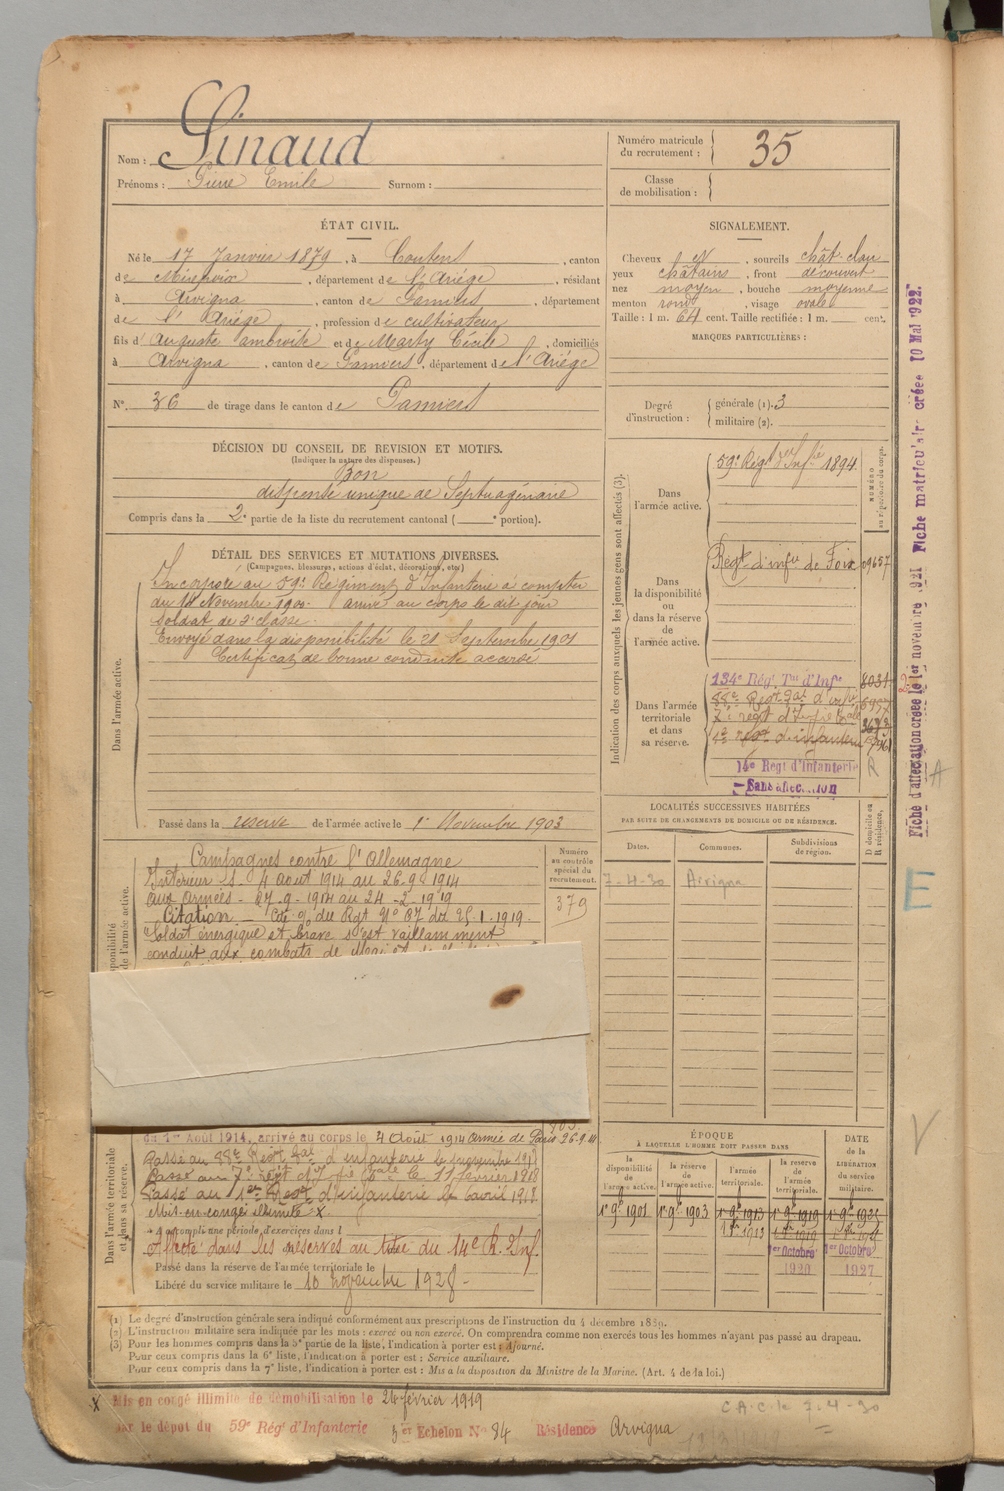 Nom : Pinaud
Prénoms : Pierre Emile Surnom :
Numéro matricule du recrutement : 35
Classe de mobilisation :
ÉTAT CIVIL.
Né le 17 Janvier 1879, à Coutens, canton
de Mirepoix, département de l'Ariége, résidant
à Arvigna, canton de Pamiers, département
de l'Ariége, profession de cultivateur
fils d'Auguste ambroise et de Marty Cécile, domiciliés
à Arvigna, canton de Pamiers, département de l'Ariége
N° 36 de tirage dans le canton de Pamiers
SIGNALEMENT.
Cheveux et, sourcils chât. clair
yeux châtains, front découvert
nez moyen, bouche moyenne
menton rond, visage ovale
Taille : 1 m. 64 cent. Taille rectifiée : 1 m. cent.
MARQUES PARTICULIÈRES :
Degré d'instruction : générale (1). 3
militaire (2).
DÉCISION DU CONSEIL DE REVISION ET MOTIFS.
(Indiquer la nature des dispenses.)
Bon
dispensé unique de Septuagénaire
Compris dans la 2e partie de la liste du recrutement cantonal ( e portion).
DÉTAIL DES SERVICES ET MUTATIONS DIVERSES.
(Campagnes, blessures, actions d'éclat, décorations, etc.)
Dans l'armée active.
Incorporé au 59e Régiment d'Infanterie à compter
du 14 Novembre 1900. arrivé au corps le dit jour
soldat de 2e classe.
Envoyé dans la disponibilité le 21 Septembre 1901
Certificat de bonne conduite accordé
Passé dans la reserve de l'armée active le 1er Novembre 1903
Indication des corps auxquels les jeunes gens sont affectés (3).
NUMÉRO au répertoire du corps.
Dans l'armée active.
59e Régt d'Infie 1894
Dans la disponibilité ou dans la réserve de l'armée active.
Régt d'infie de Foix 09657
Dans l'armée territoriale et dans sa réserve.
134e Rég. Tal d'Infie 8031
14e Regt d'Infanterie R
Sans affectation
Fiche d'affectation créée le 1er novembre 1921 Fiche matriculaire créée 10 Mai 1922.
LOCALITÉS SUCCESSIVES HABITÉES
PAR SUITE DE CHANGEMENTS DE DOMICILE OU DE RÉSIDENCE.
D domicile ou R résidence.
Dates. Communes. Subdivisions de région.
7-4-30 Arvigna
Numéro au contrôle spécial du recrutement.
379
Campagnes contre l'Allemagne
Intérieur S. 4 aout 1914 au 26-9-1914
aux armées - 27-9-1914 au 24-2-1919
Citation - Cité % du Rgt N° 87 du 25.1.1919.
Soldat énergique et brave s'est vaillamment
conduit aux combats de
du 1er Août 1914, arrivé au corps le 4 Août 1914 Armée de Paris 26.9.14
Dans l'armée territoriale et dans sa réserve.
Passé au 88e Régt Tal d'infanterie le novembre 1917
Passé au 7e régt d'Infie Tale le 11 février 1918
Passé au 1er Regt d'infanterie le 6 avril 1918.
Mis en congé illimité X.
A accompli une période d'exercices dans l
Affecté dans les réserves au titre du 14e R. d'Inf.
Passé dans la réserve de l'armée territoriale le
Libéré du service militaire le 10 novembre 1928 -
ÉPOQUE
À LAQUELLE L'HOMME DOIT PASSER DANS
DATE DE LA LIBÉRATION DU SERVICE MILITAIRE.
la disponibilité de l'armée active. la réserve de l'armée active. l'armée territoriale. la réserve de l'armée territoriale.
1r 9b 1901 1r 9b 1903 1r 9b 1913 1r 9b 1919
1er Octobre 1920 1er Octobre 1927
(1) Le degré d'instruction générale sera indiqué conformément aux prescriptions de l'instruction du 4 décembre 1889.
(2) L'instruction militaire sera indiquée par les mots : exercé ou non exercé. On comprendra comme non exercés tous les hommes n'ayant pas passé au drapeau.
(3) Pour les hommes compris dans la 5e partie de la liste, l'indication à porter est : Ajourné.
Pour ceux compris dans la 6e liste, l'indication à porter est : Service auxiliaire.
Pour ceux compris dans la 7e liste, l'indication à porter est : Mis à la disposition du Ministre de la Marine. (Art. 4 de la loi.)
X Mis en congé illimité de démobilisation le 24 février 1919
par le dépôt du 59e Rég d'Infanterie 3er Echelon N° 84 Résidence Arvigna
C.A.C. le 7-4-30
E
V
A